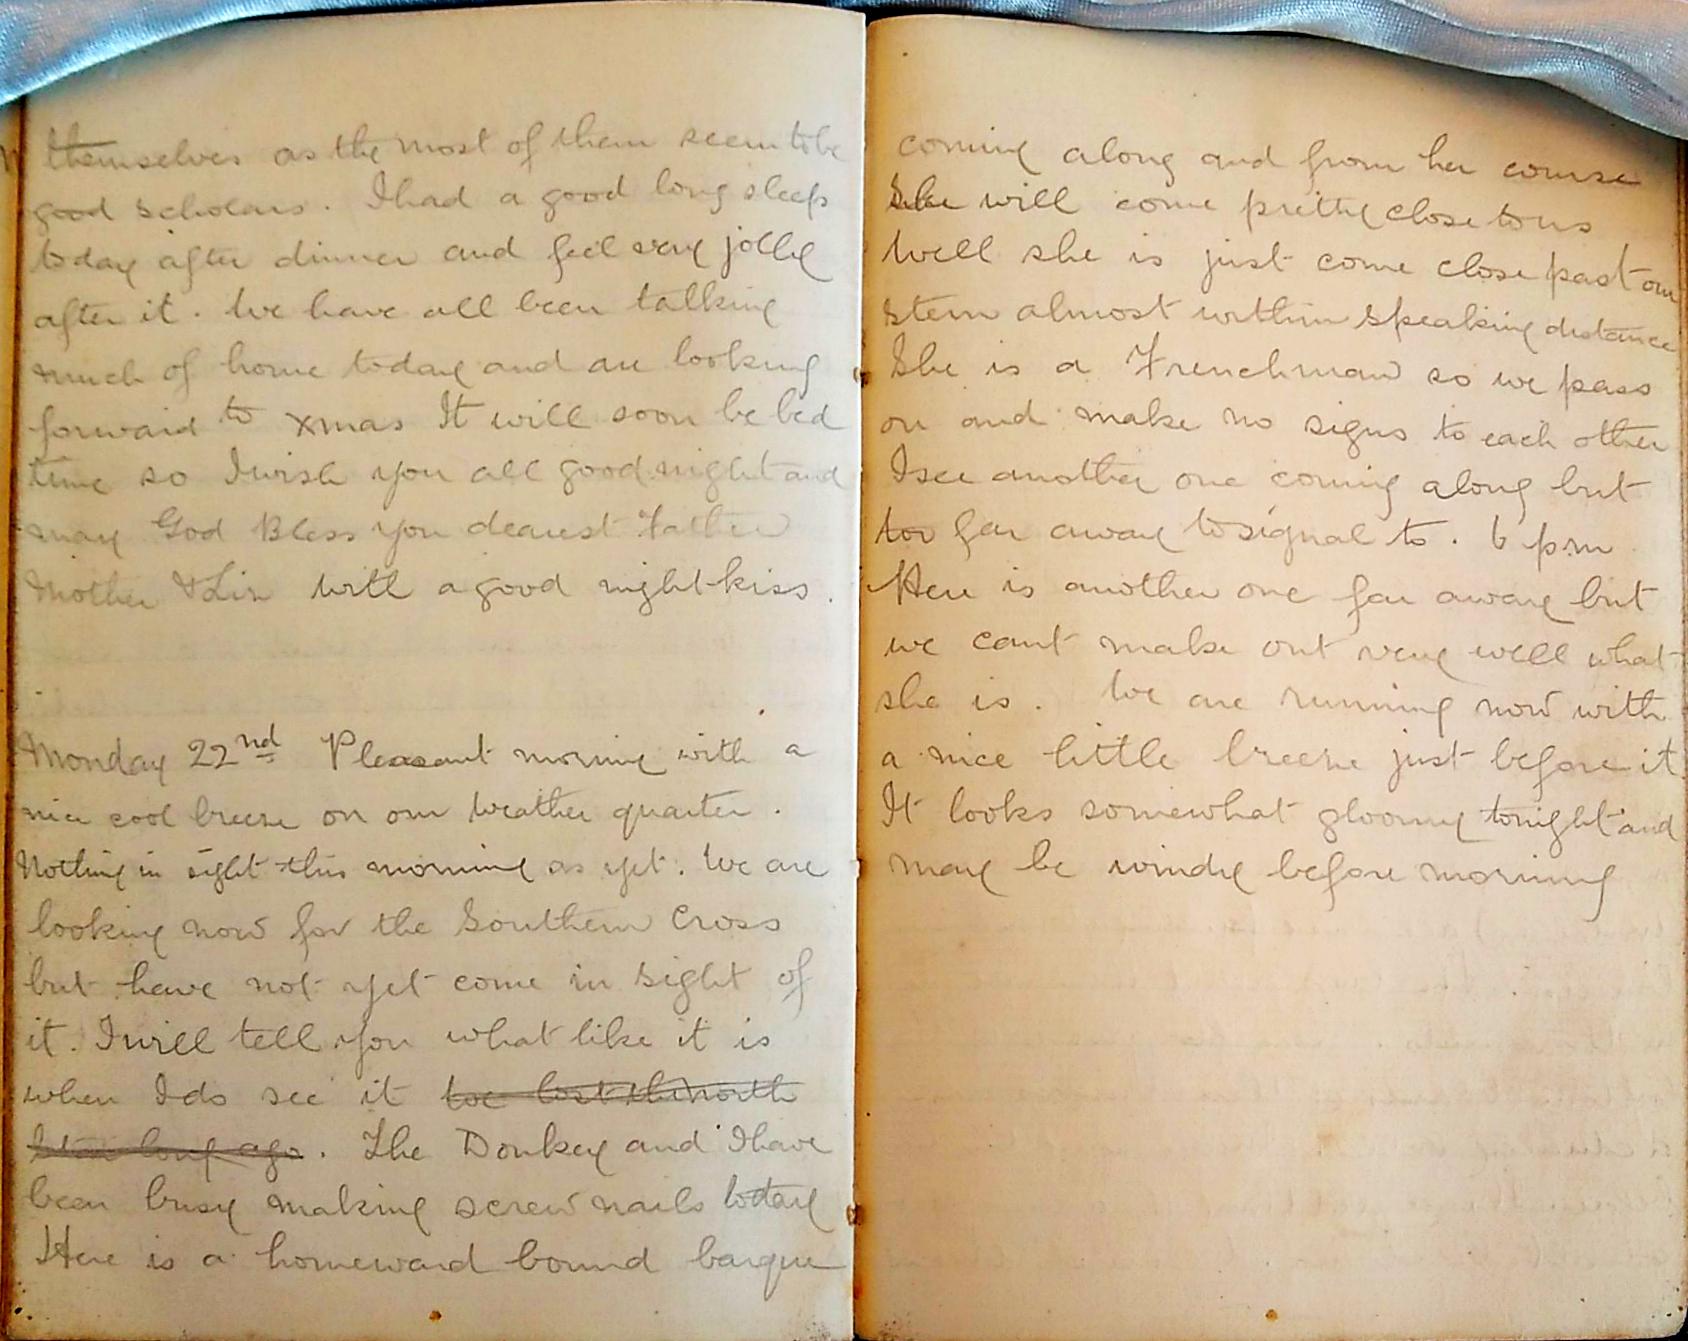 themselves as the most of them seem to be
good scholars. I had a good long sleep
today after dinner and feel very jolly
after it. We have all been talking
much of home today and are looking
forward to xmas It will soon be bed
time so I wish you all good night and
may God Bless you dearest Father
Mother & Liz with a good night-kiss.
Monday 22nd Pleasant morning with a
nice cool breeze on our weather quarter.
Nothing in sight this morning as yet. We are
looking now for the Southern Cross
but have not yet come in sight of
it. I will tell you what like it is
when I do see it we lost the North
Star long ago. The Donkey and I have
been busy making screw nails today
Here is a homeward bound barque
coming along and from her course
She will come pretty close to us
Well she is just come close past our
stern almost within speaking distance
She is a Frenchman so we pass
on and make no signs to each other
I see another one coming along but
too far away to signal to. 6 pm
Here is another one far away but
we cant make out very well what
she is. We are running now with
a nice little breeze just before it
It looks somewhat gloomy tonight and
may be windy before morning